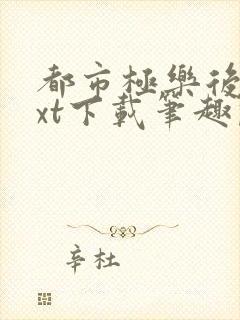 都市極樂後
xt下載筆趣
辛杜